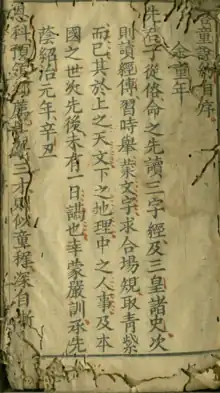 童說約自序
余童年
先君子從俗命之先讀三字經及三皇諸史次
則讀經傳習時舉業文字求合場規取青紫
而已其於上之天文下之地理中之人事及本
國之世次先後未有一日講也幸蒙嚴訓承先
蔭紹治元年辛丑
恩科預領鄉薦三才則似童稚深自慚